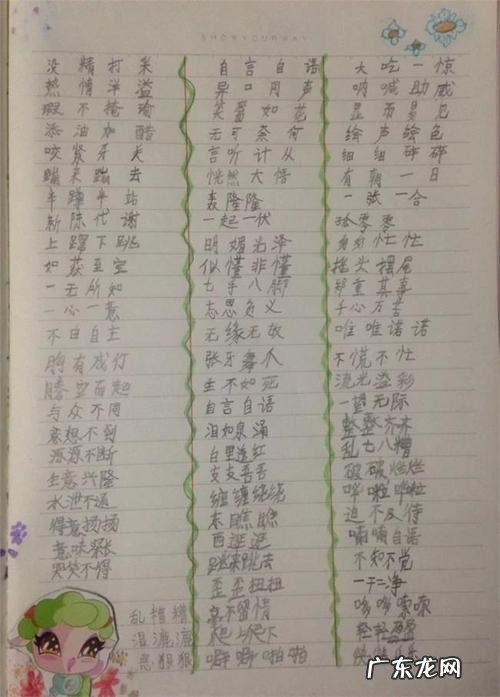 SHOW YOUR WAY
没精打采
热情洋溢
瑕不掩瑜
添油加醋
咬紧牙关
蹦来蹦去
半蹲半站
新陈代谢
上蹿下跳
如获至宝
一无所知
一心一意
不由自主
胸有成竹
腾空而起
与众不同
意想不到
源源不断
生意兴隆
水泄不通
得意扬扬
意味深长
哭笑不得
乱糟糟
湿漉漉
恶狠狠
自言自语
异口同声
笑靥如花
无可奈何
言听计从
恍然大悟
轰隆隆
一起一伏
明媚光泽
似懂非懂
七手八脚
忘恩负义
无缘无故
张牙舞爪
生不如死
自言自语
泪如泉涌
白里透红
支支吾吾
缠缠绕绕
东瞧瞧
西逛逛
跳来跳去
歪歪扭扭
毫不留情
爬上爬下
噼噼啪啪
大吃一惊
呐喊助威
显而易见
绘声绘色
细细碎碎
有朝一日
一张一合
孤零零
匆匆忙忙
摇头摆尾
郑重其事
千辛万苦
唯唯诺诺
不慌不忙
流光溢彩
一望无际
整整齐齐
乱七八糟
破破烂烂
哗啦哗啦
迫不及待
喃喃自语
不知不觉
一干二净
哆哆嗦嗦
轻轻
广东龙网